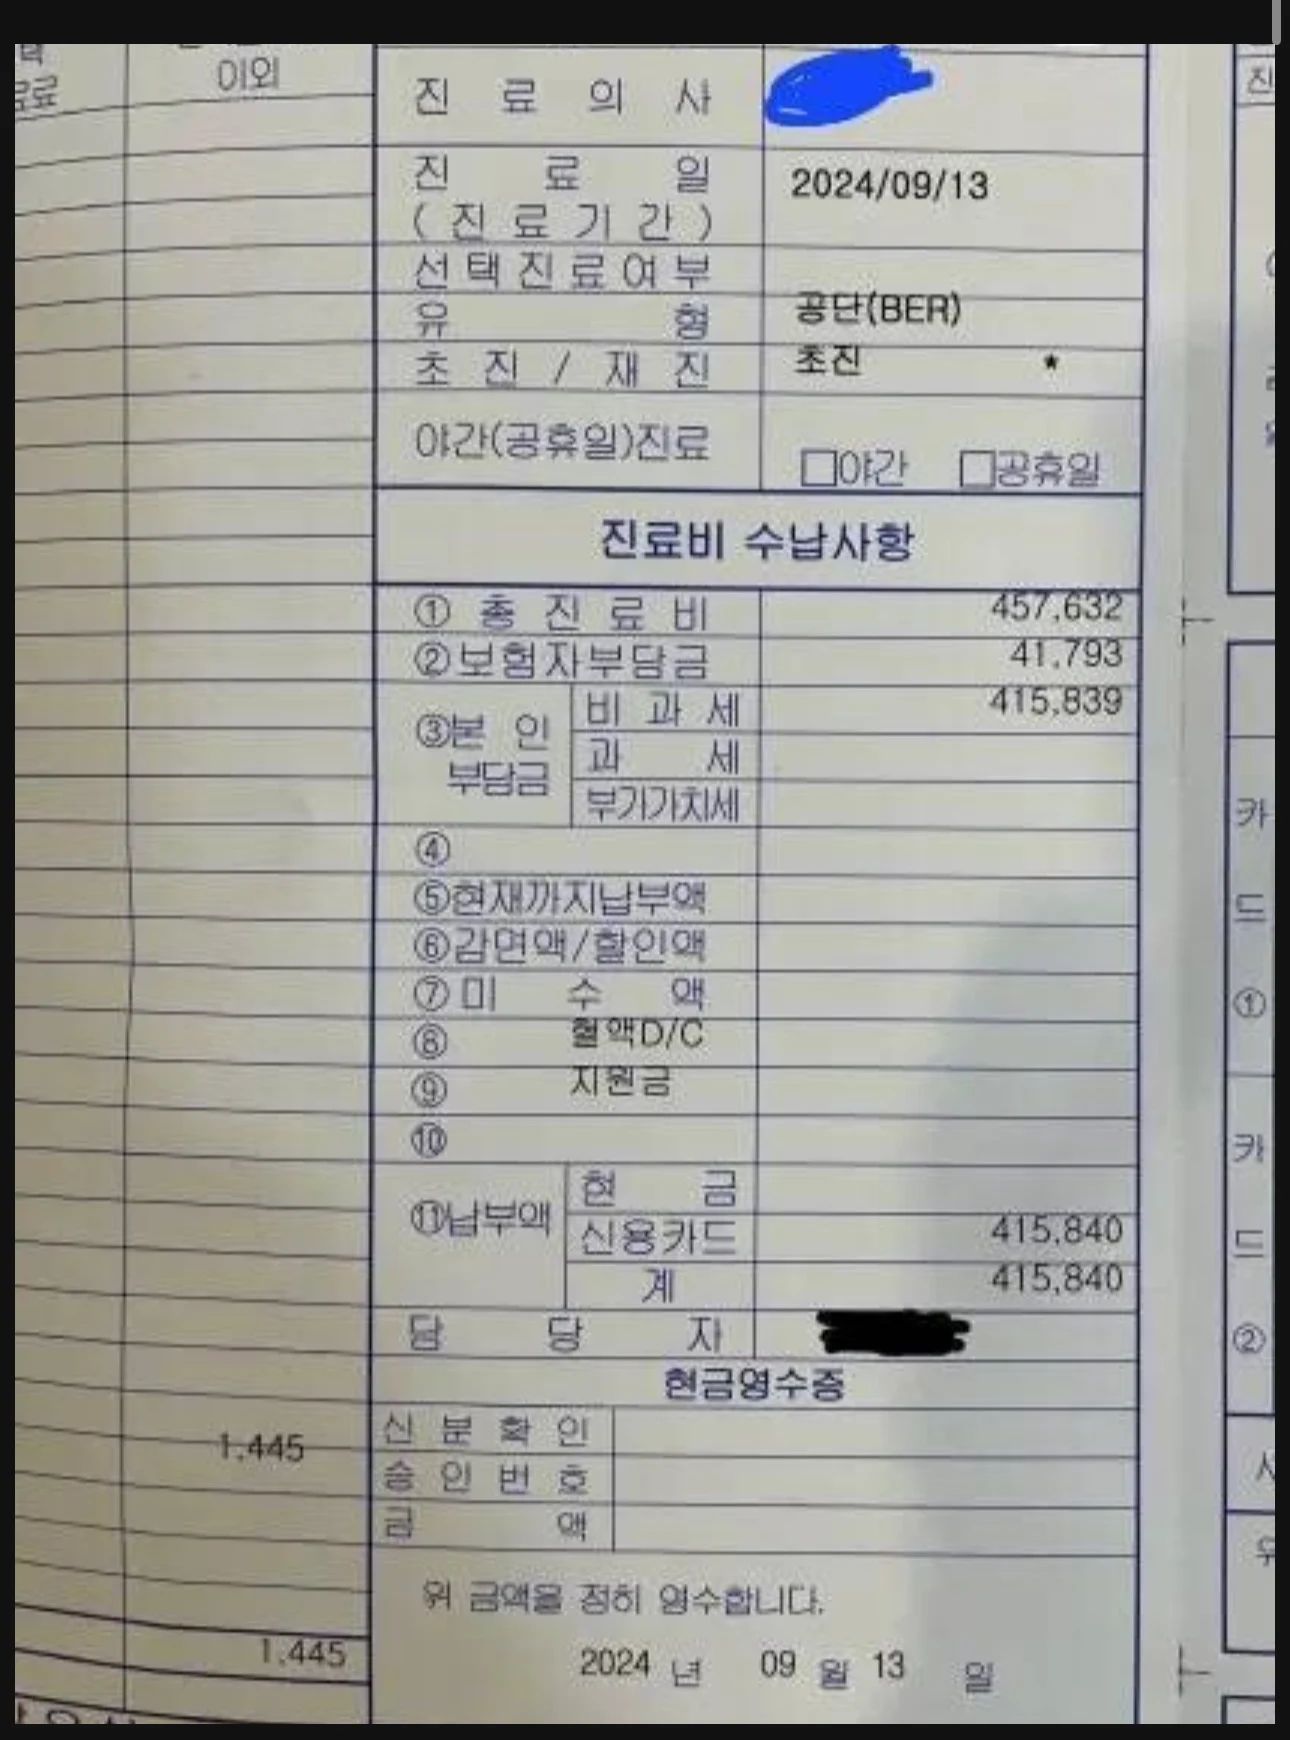 이외
진료의사
진료일
(진료기간)
2024/09/13
선택진료여부
유형
공단(BER)
초진/재진
초진 *
야간(공휴일)진료
□야간 □공휴일
진료비 수납사항
①총진료비 457,632
②보험자부담금 41,793
③본인
부담금
비과세 415,839
과세
부가가치세
④
⑤현재까지납부액
⑥감면액/할인액
⑦미수액
⑧ 혈액D/C
⑨ 지원금
⑩
⑪납부액
현금
신용카드 415,840
계 415,840
담당자
현금영수증
신분확인
승인번호
금액
1,445
위 금액을 정히 영수합니다.
1,445
2024 년 09 월 13 일
진
카
드
①
카
드
②